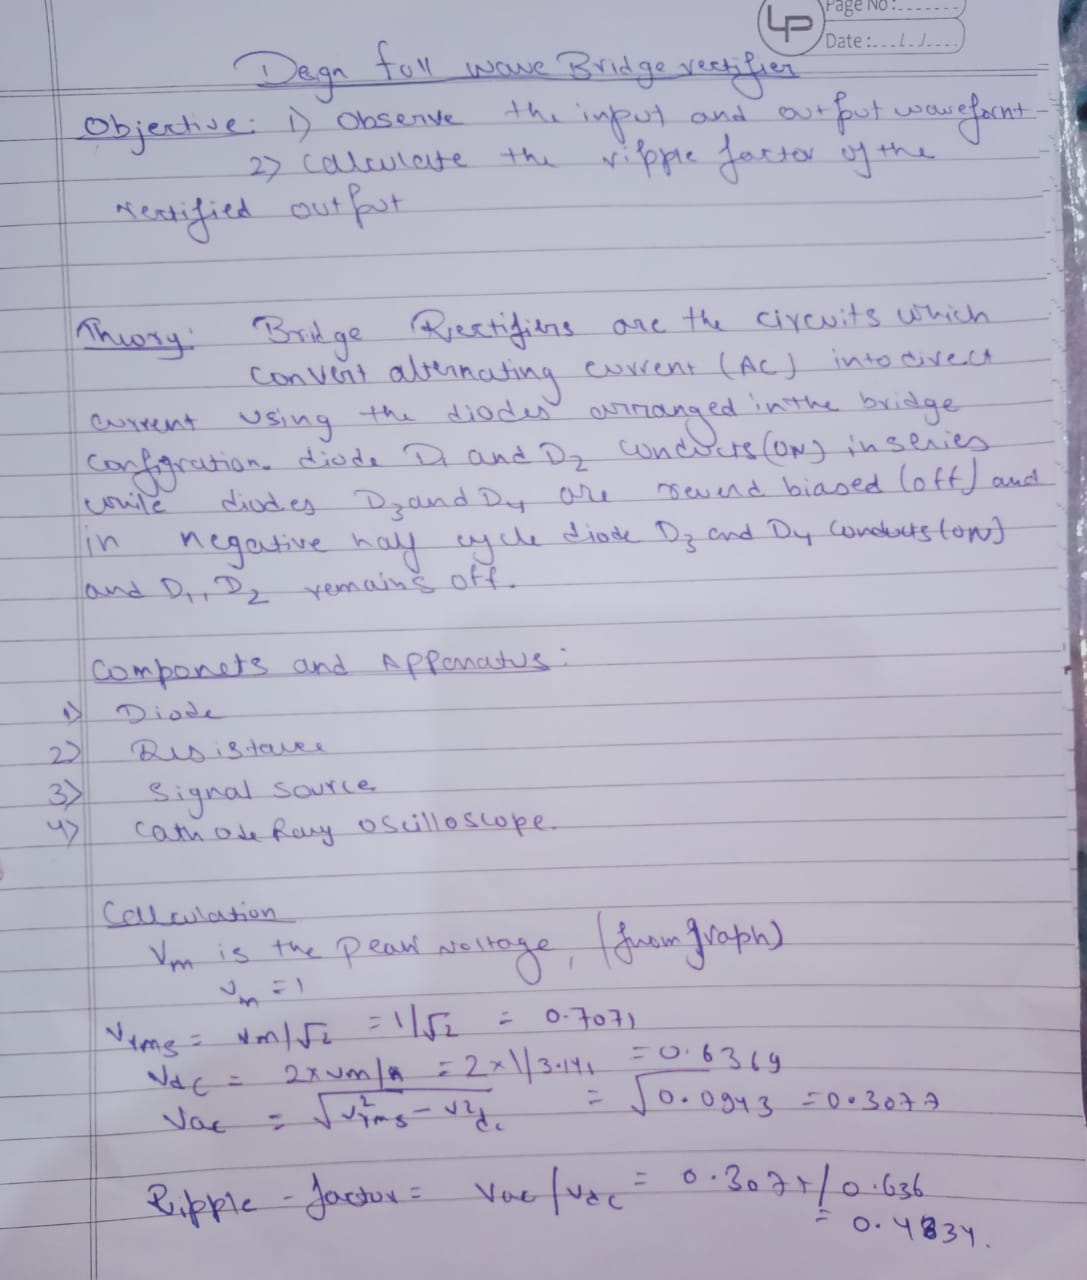 LP
Page No:.......
Date:.../.../....
Degn full wave Bridge rectifier
Objective: 1) Observe the input and output waveformt
2) Calculate the ripple factor of the
rectified output
Theory: Bridge Rectifiers are the circuits which
convert alternating current (AC) into direct
current using the diodes arranged in the bridge
configration. diode D1 and D2 conducts (ON) in series
while diodes D3 and D4 are reverd biased (off) and
in negative half cycle diode D3 and D4 conducts (ON)
and D1, D2 remains off.
Componets and Apparatus:
1) Diode
2) Resistance
3) Signal source
4) Cathode Ray oscilloscope.
Calculation
Vm is the peak voltage, (from graph)
Vm = 1
Vrms = Vm/√2 = 1/√2 = 0.7071
Vdc = 2×Vm/π = 2×1/3.141 = 0.6369
Vac = √V²rms - V²dc = √0.0943 = 0.3077
Ripple - factor = Vac/Vdc = 0.3077/0.636
= 0.4834.